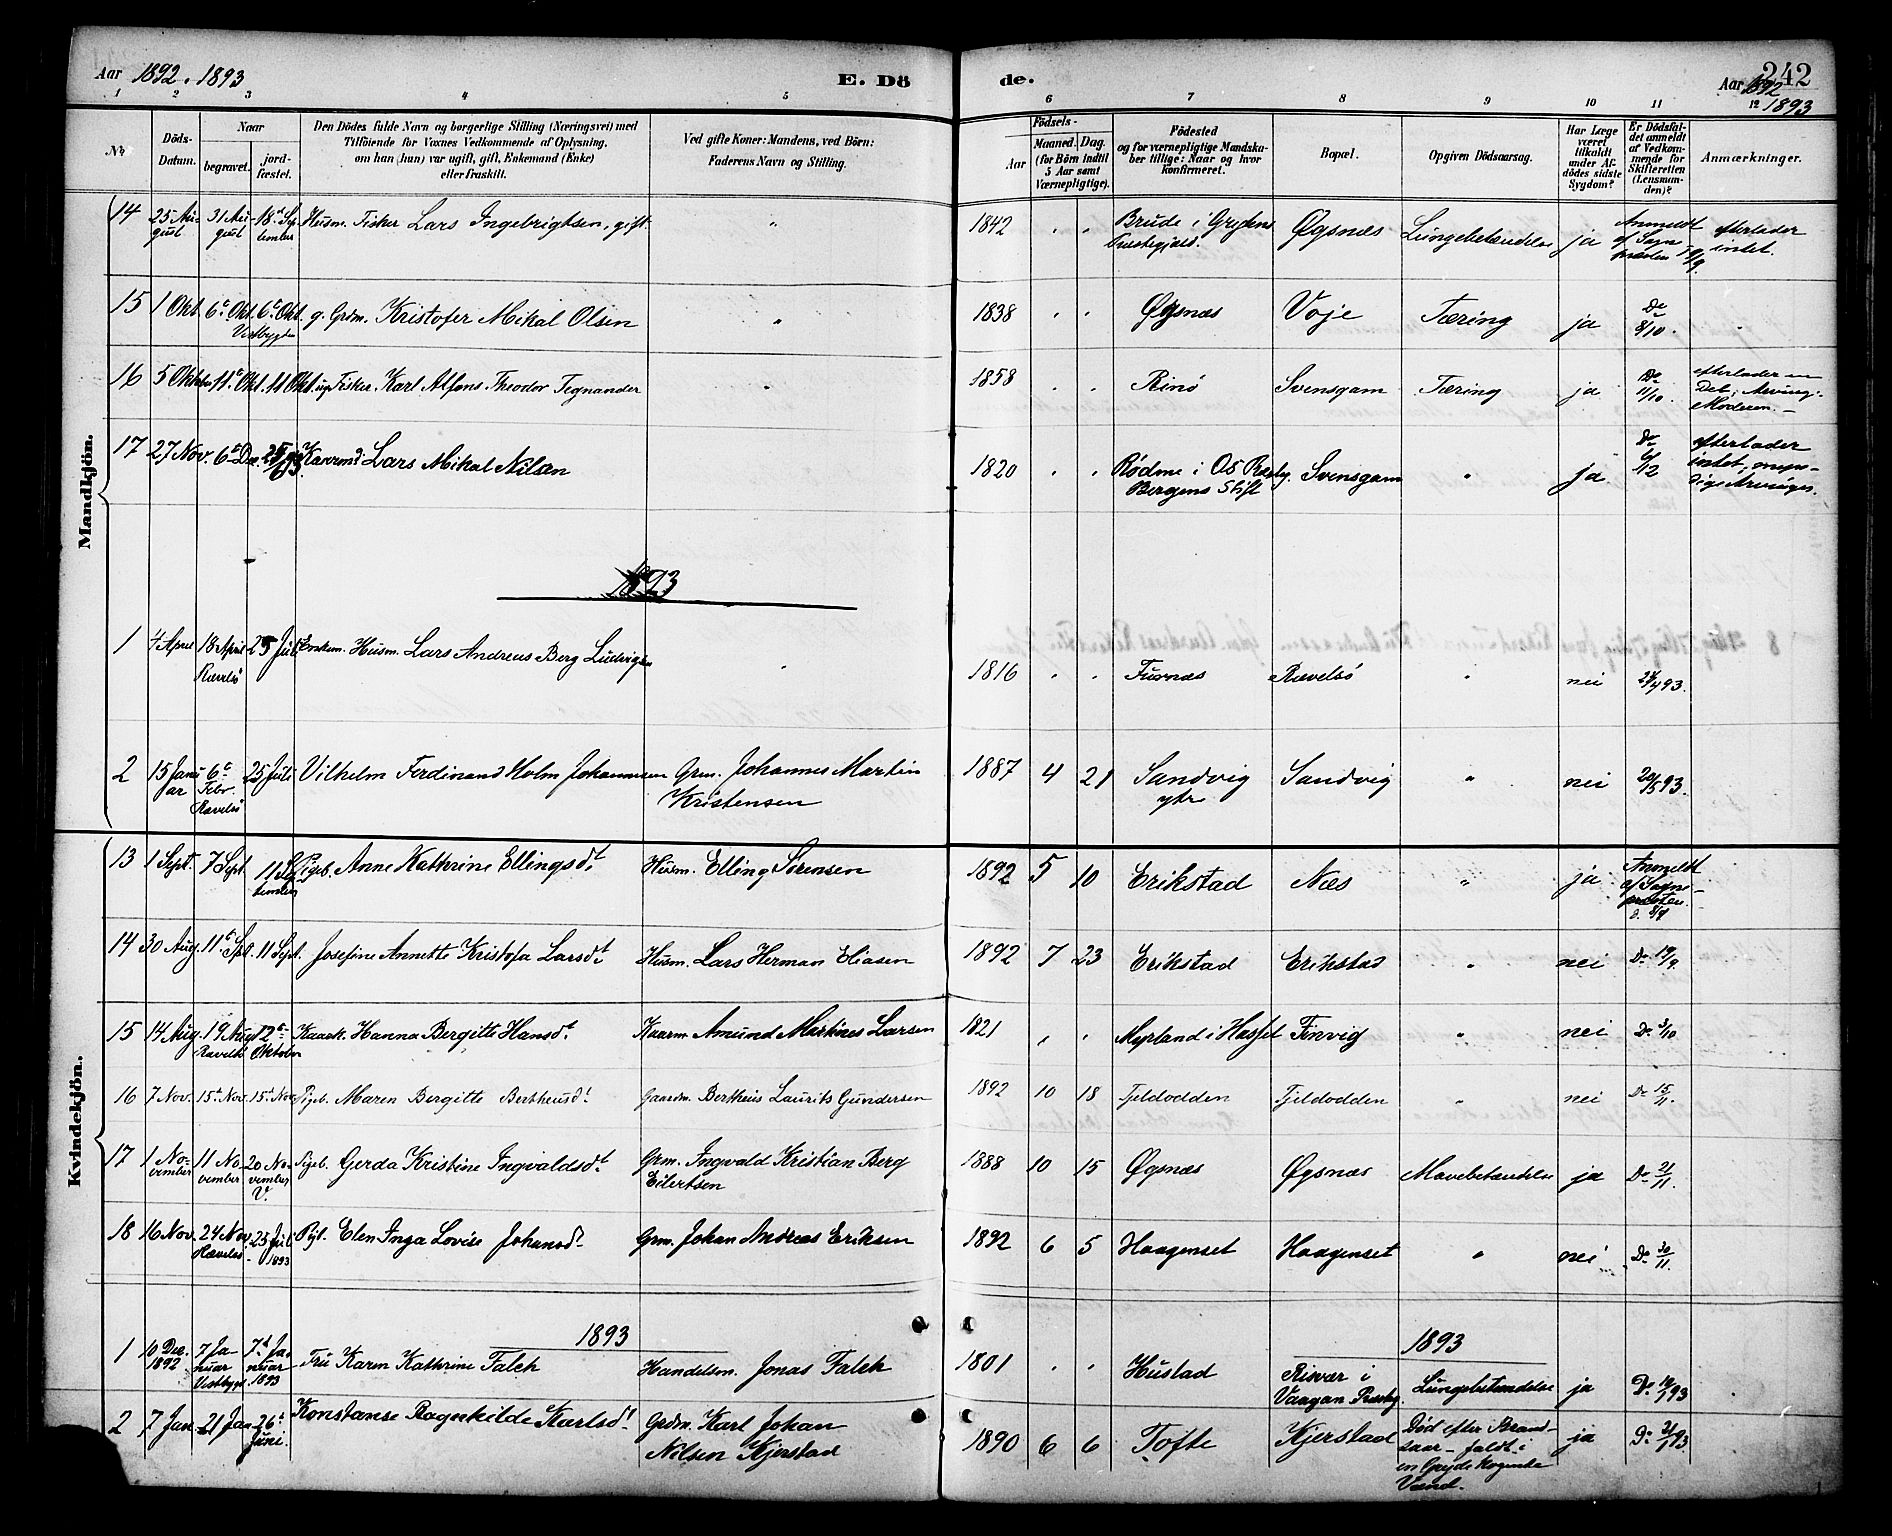 Aar 1892. 1893
E. Dö
de.
242
Aar 1892
1893
1 2 3 4 5 6 7 8 9 10 11 12
Nr
Döds-
Datum.
Naar
begravet.
jord-
fæstet.
Den Dödes fulde Navn og borgerlige Stilling (Næringsvei) med
Tilföiende for Voxnes Vedkommende af Oplysning,
om han (hun) var ugift, gift, Enkemand (Enke)
eller fraskilt.
Ved gifte Koner: Mandens, ved Börn:
Faderens Navn og Stilling.
Födsels-
Aar
Maaned. Dag.
(for Börn indtil
5 Aar samt
Værnepligtige).
Födested
og for værnepligtige Mandska-
ber tillige: Naar og hvor
konfirmeret.
Bopæl.
Opgiven Dödsaarsag.
Har Læge
været
tilkaldt
under Af-
dödes sidste
Sygdom?
Er Dödsfal-
det anmeldt
af Vedkom-
mende for
Skifteretten
(Lensman-
den)?
Anmærkninger.
Mandkjön.
14 25 Au-
gust 31 Au-
gust 18d Sep
tember Husm. Fisker Lars Ingebrigtsen, gift. " 1842 " " Brude i Grydens
Præstegjæld. Øgsnæs Lungebetændelse ja Anmeldt
af Sogn
præsten 19/9. efterlader
intet.
15 1 Okt. 6t Okt.
Vestbygden 6t Okt. g. Grdm. Kristofer Mikal Olsen " 1838 " " Øgsnæs Voje Tæring ja Do
8/10.
16 5 Oktbr 11t Okt. 11 Okt. ug. Fisker. Karl Alfons Theodor Tegnander " 1858 " " Rinö Svensgam Tæring ja Do
11/10. efterlader en
Del; Arving:
Moderen.—
17 27 Nov. 6te Dec. Kaarmd. Lars Mikal Nilsen 1820 " " Rødme i OS Præstg.
Bergens Stift Svensgam " ja. Do
6/12 efterlader
intet,
1893
1 4 April 18 April
Rævelsö 25 Juli Enkem. Husm. Lars Andreas Berg Ludvigsen " 1816 " " Furnæs Rævelsö " nei 24/4 93.
2 15 Janu
ar 6t
Febr.
Rævelsö 25 Juli Vilhelm Ferdinand Holm Johannesen Grm. Johannes Martin
Kristensen 1887 4 21 Sandvig
ytre Sandvig " nei 20/5 93.
Kvindekjön.
13 1 Sept. 7 Sept. 11 Sep
tember Pigeb. Anne Kathrine Ellingsdt Husm. Elling Sørensen 1892 5 10 Erikstad Næs " ja Anmeldt
af Sogne-
præsten.
d. 8/9
14 30 Aug. 11t Spt. 11 Sept. Josefine Annette Kristofa Larsdt Husm. Lars Herman Eliasen 1892 7 23 Erikstad Erikstad " nei Do 19/9.
15 14 Aug. 19 Aug
Rævelsö 12te
Oktober Kaark. Hanna Bergitte Hansdt Kaarm. Amund Martines Larsen 1821 " " Myrland i Hassel Finvig " nei Do 3/10
16 7 Nov. 15d Nov. 15d Nov. Pigeb. Maren Bergitte Bertheusdt Gaardm. Bertheus Laurits Gundersen 1892 10 18 Fjeldodden Fjeldodden " nei Do 15/11.
17 1 No-
vember 11 No-
vember 20 No-
vember
V. Pigeb. Gerda Kristine Ingvaldsdt Grm. Ingvald Kristian Berg
Eilertsen 1888 10 15 Øgsnæs Øgsnæs Mavebetændelse ja Do 21/11.
18 16 Nov. 24 Nov.
Rævelsö 25 Juli
1893 Pgb. Elen Inga Lovise Johansdt Grm. Johan Andreas Eriksen 1892 6 5 Haagenset Haagenset " nei Do 30/11.
1893
1893
1 10 Dec.
1892 7 Ja-
nuar
Vestbygd. 7d Ja-
nuar
1893 Fru Karen Kathrine Falch Handelsm. Jonas Falch 1801 " " Hustad Risvær i
Vaagan Præstg. Lungebetændelse ja Do 19/1 93
2 7 Jan 21 Jan 26t
Juni. Konstanse Ragnhilde Karlsdt Grdm. Karl Johan
Nilsen Kjerstad 1890 6 6 Tofte Kjerstad Død efter Brand-
saar — faldt i
en Gryde kogende
Vand. ja Do 21/1 93